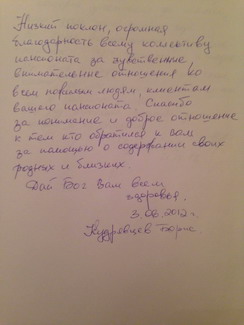 Низкий поклон, огромная
благодарность всему коллективу
пансионата за чувственные,
внимательные отношения ко
всем пожилым людям, клиентам
вашего пансионата. Спасибо
за понимание и доброе отношение
к тем кто обратился к вам
за помощью о содержании своих
родных и близких.
Дай Бог Вам всем
здоровья.
3.08.2012 г.
Кудрявцев Борис.